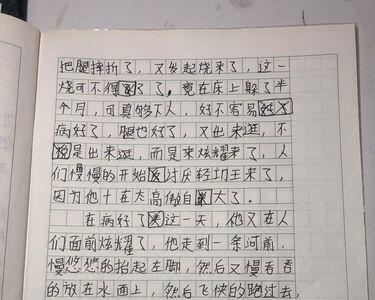 把腿摔折了，又发起烧来了，这一
烧可不得了了，竟在床上躲了半
个月，可真够下人，好不容易
病好了，腿也好了，又出来逛，不
是出来逛，而是来炫耀来了，人
们慢慢的开始讨厌轻功王来了，
因为他十在太高傲自大了。
在病好了这一天，他又在人
们面前炫耀了，他走到一条河前，
慢悠悠的抬起左脚，然后又慢吞吞
的放在水面上，然后飞侠的跑过去，